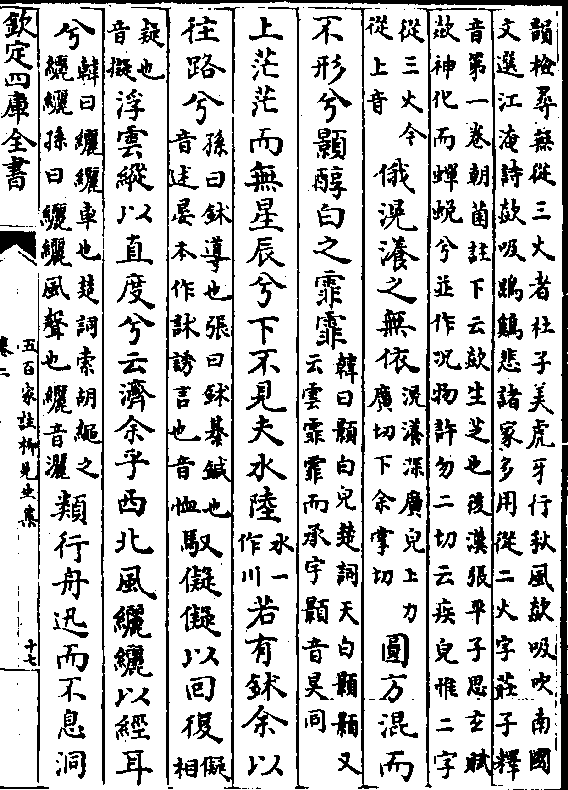 韻檢尋無從三火者杜子美虎牙行秋風歘吸吹南國
文選江淹詩歘吸鵾鷄悲諸家多用從二火字莊子釋
音第一卷朝菌註下云歘生芝也後漢張平子思玄賦
歘神化而蟬蛻兮並作况物許勿二切云疾皃惟二字
從三火今
從上音
俄滉瀁之無依
滉瀁深廣皃上力
廣切下余掌切
圓方混而
不形兮顥醇白之霏霏
韓曰顥白皃楚詞天白顥顥又
云雲霏霏而承宇顥音昊同
上茫茫而無星辰兮下不見夫水陸
水一
作川
若有鉥余以
往路兮
孫曰鉥導也張曰鉥綦鍼也
音述晏本作訹誘言也音恤
馭儗儗以回復
儗
相
疑也
音擬
浮雲縱以直度兮云濟余乎西北風纚纚以經耳
兮
韓曰纚纚車也楚詞索胡繩之
纚纚孫曰纚纚風聲也纚音灑
類行舟迅而不息洞
欽定四庫全書
五百家註柳先生集
卷二
十七